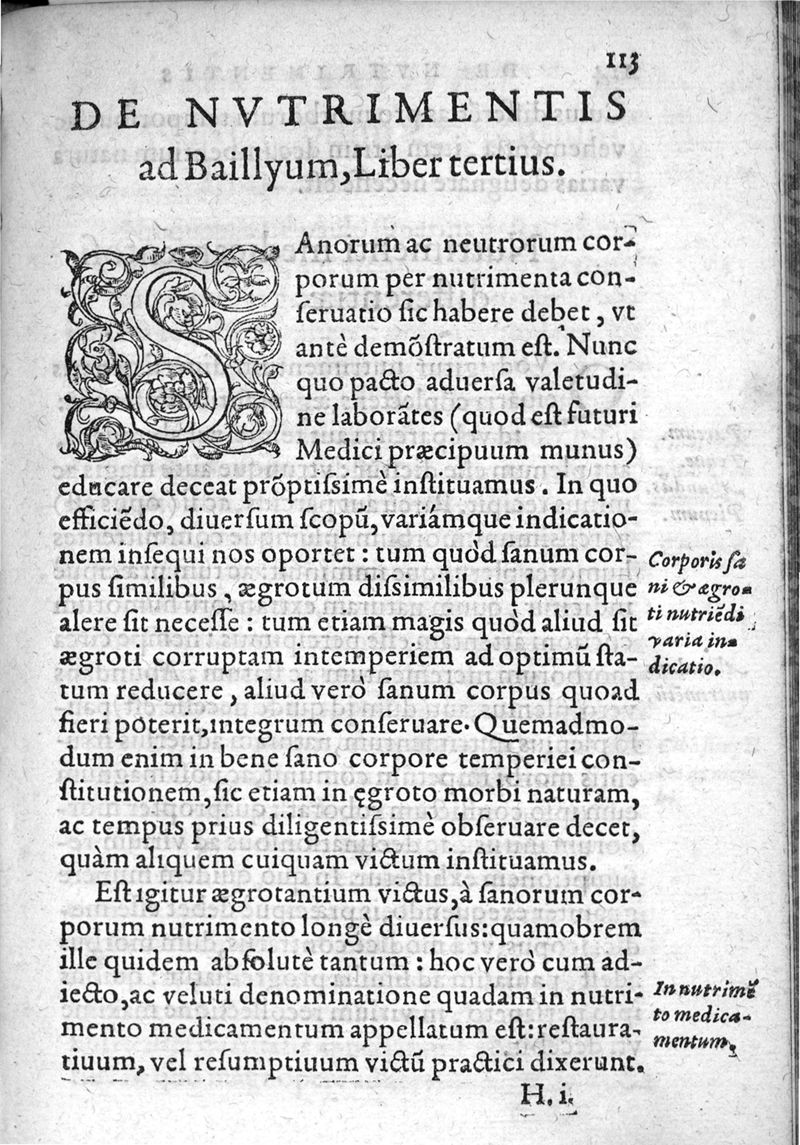 113
DE NVTRIMENTIS
ad Baillyum, Liber tertius.
SAnorum ac neutrorum cor-
porum per nutrimenta con-
ſeruatio ſic habere debet, vt
antè demõſtratum eſt. Nunc
quo pacto aduerſa valetudi-
ne laborãtes (quod eſt futuri
Medici præcipuum munus)
educare deceat prõptiſsimè inſtituamus. In quo
efficiẽdo, diuerſum ſcopũ, variámque indicatio-
nem inſequi nos oportet: tum quòd ſanum cor-
pus ſimilibus, ægrotum diſsimilibus plerunque
alere ſit neceſſe: tum etiam magis quòd aliud ſit
ægroti corruptam intemperiem ad optimũ ſta-
tum reducere, aliud verò ſanum corpus quoad
fieri poterit, integrum conſeruare. Quemadmo-
dum enim in bene ſano corpore temperiei con-
ſtitutionem, ſic etiam in ęgroto morbi naturam,
ac tempus prius diligentiſsimè obſeruare decet,
quàm aliquem cuiquam victum inſtituamus.
Eſt igitur ægrotantium victus, à ſanorum cor-
porum nutrimento longè diuerſus: quamobrem
ille quidem abſolutè tantum: hoc verò cum ad-
iecto, ac veluti denominatione quadam in nutri-
mento medicamentum appellatum eſt: reſtaura-
tiuum, vel reſumptiuum victũ practici dixerunt.
Corporis ſa
ni & ægro-
ti nutriẽdi
varia in-
dicatio.
In nutrimẽ
to medica-
mentum.
H. i.